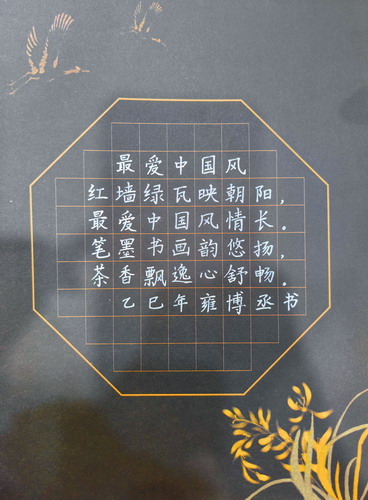 最爱中国风
红墙绿瓦映朝阳，
最爱中国风情长。
笔墨书画韵悠扬，
茶香飘逸心舒畅。
乙巳年雍博丞书